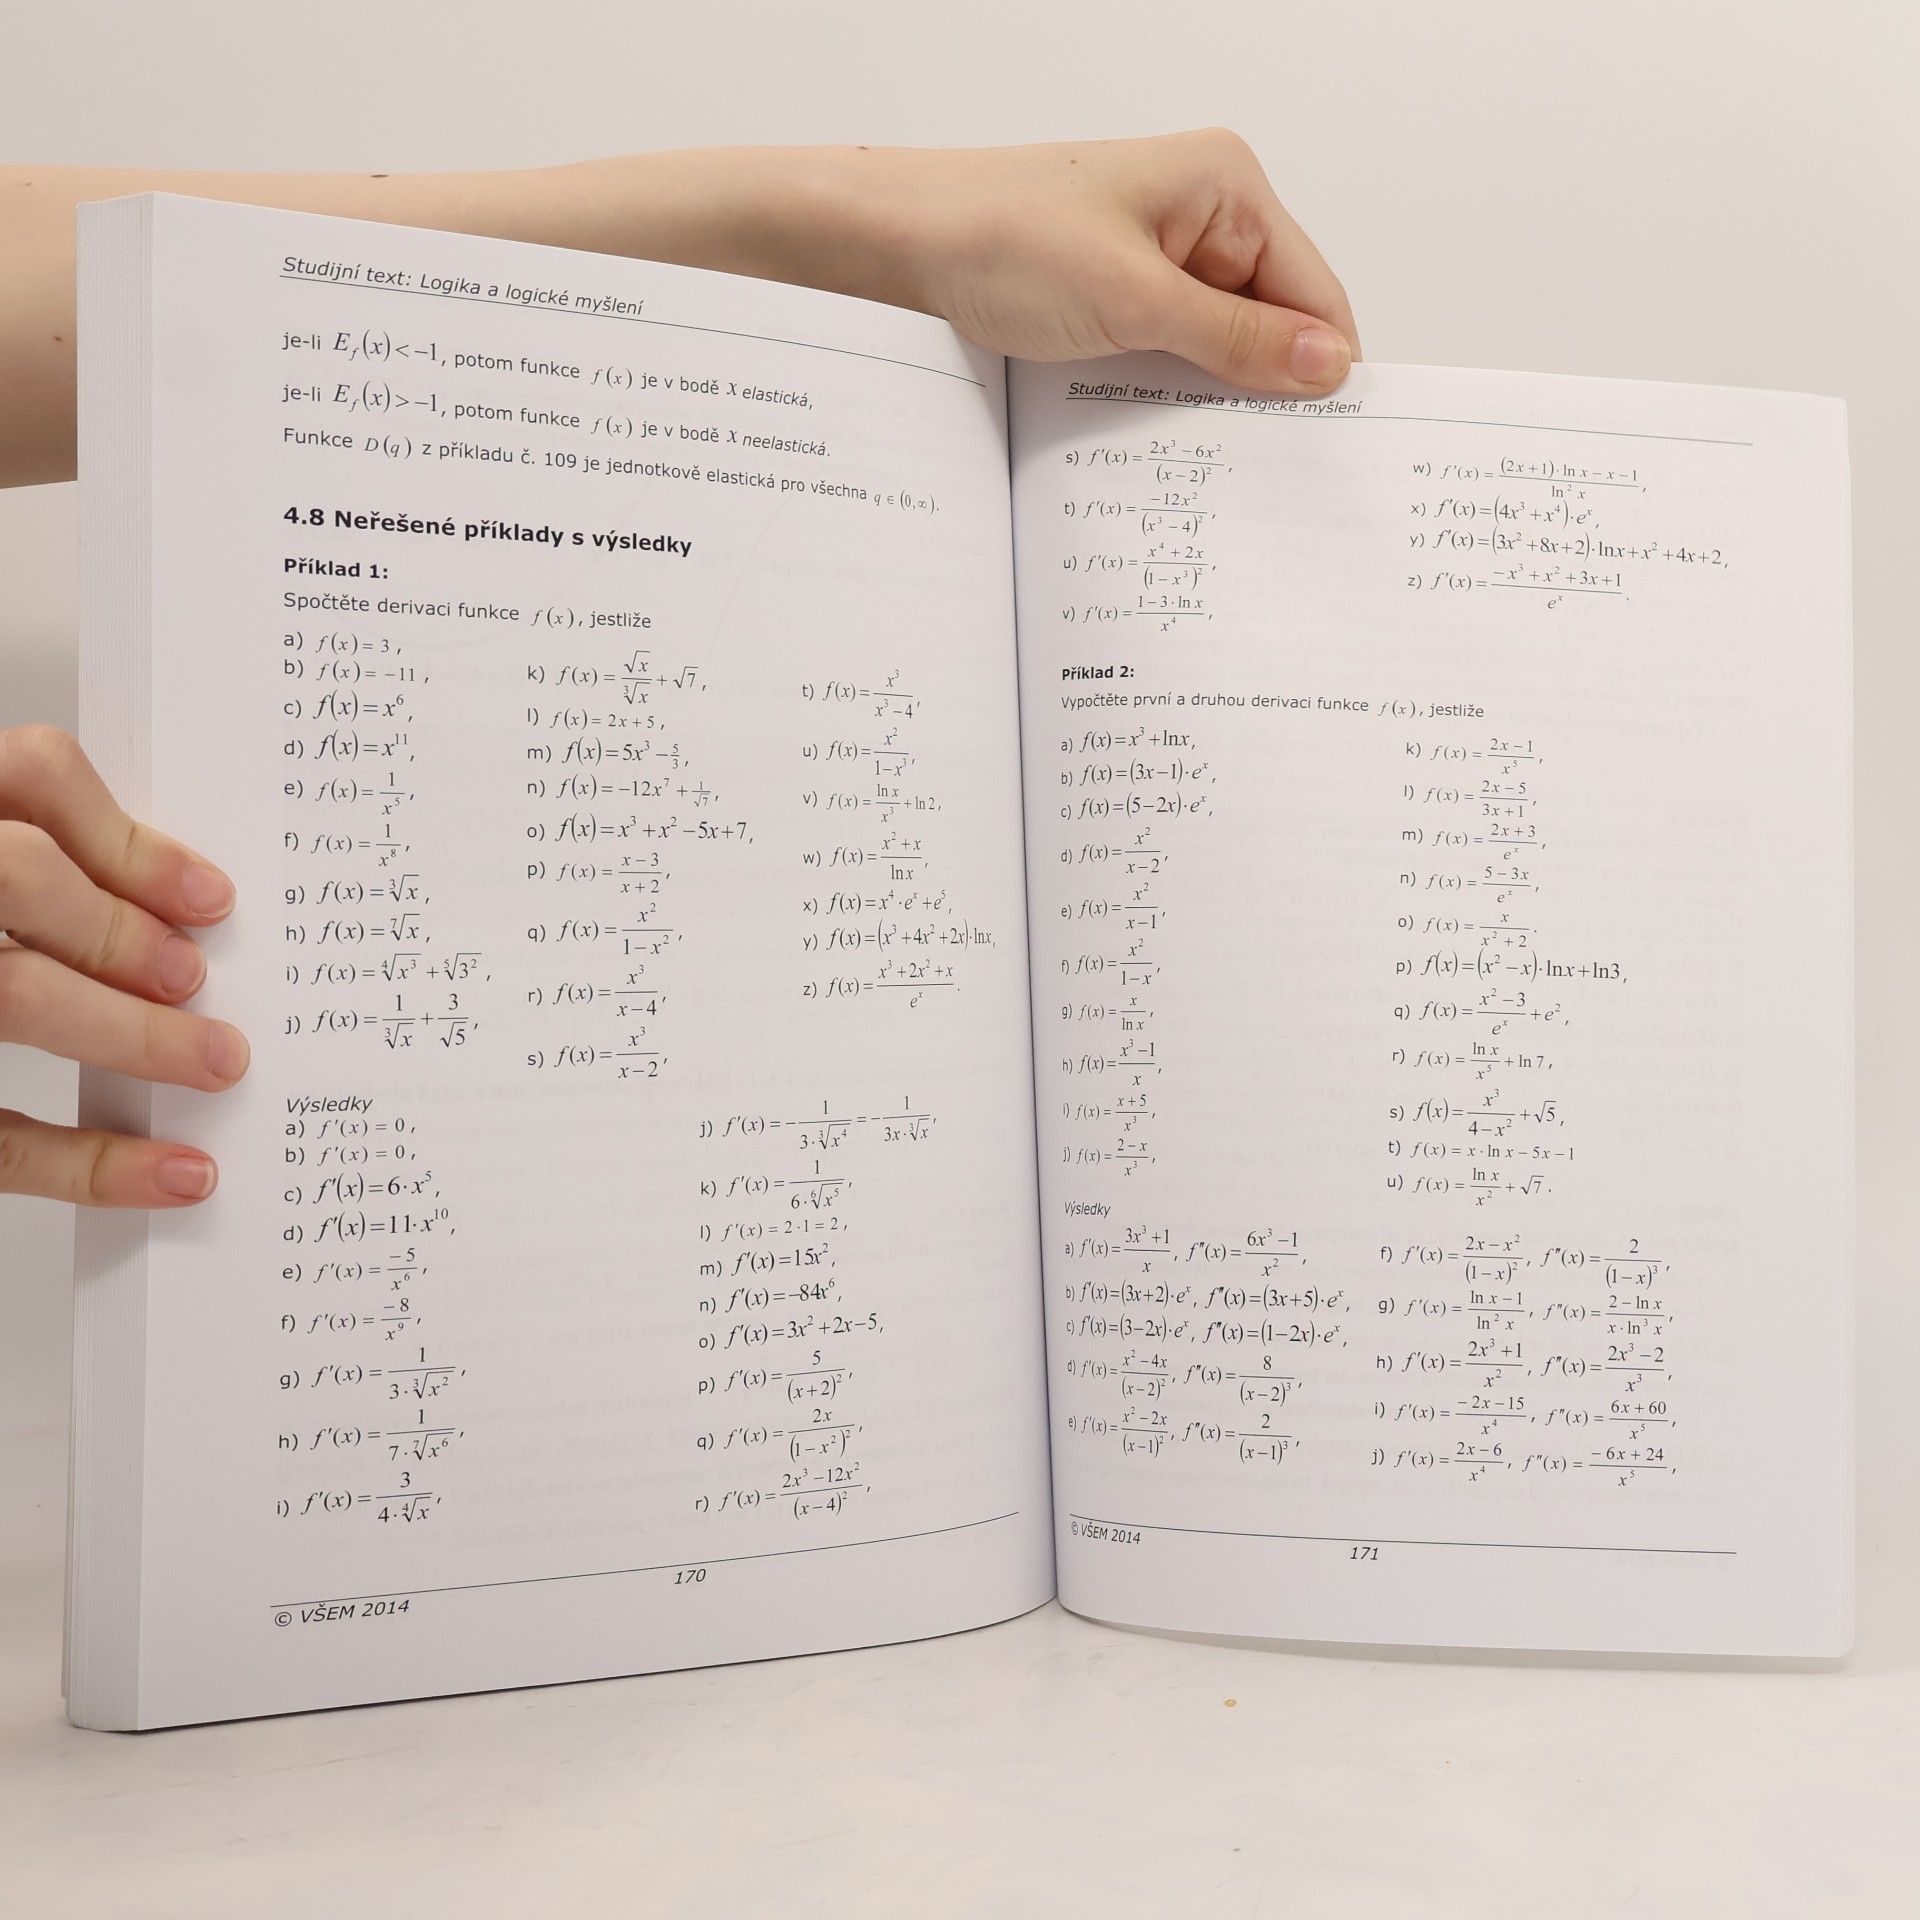 Studijní text: Logika a logické myšlení
je-li E_f(x) < −1, potom funkce f(x) je v bodě x elastická,
je-li E_f(x) > −1, potom funkce f(x) je v bodě x neelastická.
Funkce D(q) z příkladu č. 109 je jednotkově elastická pro všechna q ∈ (0,∞).
4.8 Neřešené příklady s výsledky
Příklad 1:
Spočtěte derivaci funkce f(x), jestliže
a) f(x) = 3,
b) f(x) = −11,
c) f(x) = x^6,
d) f(x) = x^11,
e) f(x) = 1/x^5,
f) f(x) = 1/x^8,
g) f(x) = ∛x,
h) f(x) = ⁷√x,
i) f(x) = ⁴√(x^3) + ⁵√(3^2),
j) f(x) = 1/∛x + 3/√5,
k) f(x) = √x/∛x + √7,
l) f(x) = 2x + 5,
m) f(x) = 5x^3 − 5/3,
n) f(x) = −12x^7 + 1/√7,
o) f(x) = x^3 + x^2 − 5x + 7,
p) f(x) = (x − 3)/(x + 2),
q) f(x) = x^2/(1 − x^2),
r) f(x) = x^3/(x − 4),
s) f(x) = x^3/(x − 2),
t) f(x) = x^3/(x^3 − 4),
u) f(x) = x^2/(1 − x^3),
v) f(x) = ln x/x^3 + ln 2,
w) f(x) = (x^2 + x)/ln x,
x) f(x) = x^4 · e^x + e^5,
y) f(x) = (x^3 + 4x^2 + 2x) · ln x,
z) f(x) = (x^3 + 2x^2 + x)/e^x.
Výsledky
a) f'(x) = 0,
b) f'(x) = 0,
c) f'(x) = 6 · x^5,
d) f'(x) = 11 · x^10,
e) f'(x) = −5/x^6,
f) f'(x) = −8/x^9,
g) f'(x) = 1/(3 · ∛(x^2)),
h) f'(x) = 1/(7 · ⁷√(x^6)),
i) f'(x) = 3/(4 · ⁴√x),
j) f'(x) = −1/(3 · ∛(x^4)) = −1/(3x · ∛x),
k) f'(x) = 1/(6 · ⁶√(x^5)),
l) f'(x) = 2 · 1 = 2,
m) f'(x) = 15x^2,
n) f'(x) = −84x^6,
o) f'(x) = 3x^2 + 2x − 5,
p) f'(x) = 5/(x + 2)^2,
q) f'(x) = 2x/(1 − x^2)^2,
r) f'(x) = (2x^3 − 12x^2)/(x − 4)^2,
© VŠEM 2014
170
Studijní text: Logika a logické myšlení
s) f'(x) = (2x^3 − 6x^2)/(x − 2)^2,
t) f'(x) = −12x^2/(x^3 − 4)^2,
u) f'(x) = (x^4 + 2x)/(1 − x^3)^2,
v) f'(x) = (1 − 3 · ln x)/x^4,
w) f'(x) = ((2x + 1) · ln x − x − 1)/ln^2 x,
x) f'(x) = (4x^3 + x^4) · e^x,
y) f'(x) = (3x^2 + 8x + 2) · ln x + x^2 + 4x + 2,
z) f'(x) = (−x^3 + x^2 + 3x + 1)/e^x.
Příklad 2:
Vypočtěte první a druhou derivaci funkce f(x), jestliže
a) f(x) = x^3 + ln x,
b) f(x) = (3x − 1) · e^x,
c) f(x) = (5 − 2x) · e^x,
d) f(x) = x^2/(x − 2),
e) f(x) = x^2/(x − 1),
f) f(x) = x^2/(1 − x),
g) f(x) = x/ln x,
h) f(x) = (x^3 − 1)/x,
i) f(x) = (x + 5)/x^3,
j) f(x) = (2 − x)/x^3,
k) f(x) = (2x − 1)/x^5,
l) f(x) = (2x − 5)/(3x + 1),
m) f(x) = (2x + 3)/e^x,
n) f(x) = (5 − 3x)/e^x,
o) f(x) = x/(x^2 + 2).
p) f(x) = (x^2 − x) · ln x + ln 3,
q) f(x) = (x^2 − 3)/e^x + e^2,
r) f(x) = ln x/x^5 + ln 7,
s) f(x) = x^3/(4 − x^2) + √5,
t) f(x) = x · ln x − 5x − 1
u) f(x) = ln x/x^2 + √7.
Výsledky
a) f'(x) = (3x^3 + 1)/x, f''(x) = (6x^3 − 1)/x^2,
b) f'(x) = (3x + 2) · e^x, f''(x) = (3x + 5) · e^x,
c) f'(x) = (3 − 2x) · e^x, f''(x) = (1 − 2x) · e^x,
d) f'(x) = (x^2 − 4x)/(x − 2)^2, f''(x) = 8/(x − 2)^3,
e) f'(x) = (x^2 − 2x)/(x − 1)^2, f''(x) = 2/(x − 1)^3,
f) f'(x) = (2x − x^2)/(1 − x)^2, f''(x) = 2/(1 − x)^3,
g) f'(x) = (ln x − 1)/ln^2 x, f''(x) = (2 − ln x)/(x · ln^3 x),
h) f'(x) = (2x^3 + 1)/x^2, f''(x) = (2x^3 − 2)/x^3,
i) f'(x) = (−2x − 15)/x^4, f''(x) = (6x + 60)/x^5,
j) f'(x) = (2x − 6)/x^4, f''(x) = (−6x + 24)/x^5,
© VŠEM 2014
171